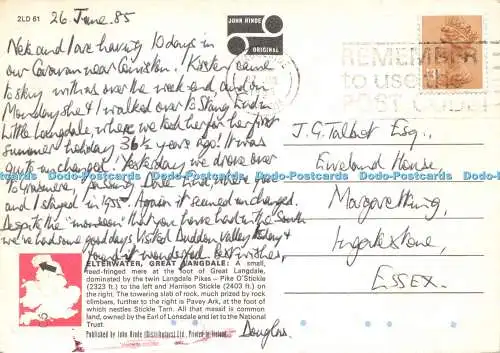 2LD 61
26 June 85
JOHN HINDE
ORIGINAL
REMEMBER
to use the
POST CODE
and I are having 10 days in
our Caravan near Coniston. Kirsten came
to stay with us over the week end and on
Monday she & I walked over to Stang End in
Little Langdale, where we took her for her first
summer holiday 36½ years ago! It was
quite unchanged. Yesterday we drove over
to Grasmere, Dale End, where you
and I stayed in 1935. Again it seemed unchanged.
Despite the "monsoon" that you have had in the South
we've had some good days. Visited Duddon Valley today &
found it wonderful. Best wishes,
Douglas.
J.G. Talbot Esq.,
House,
Margaretting,
Ingatestone,
ESSEX.
ELTERWATER, GREAT LANGDALE: A small,
reed-fringed mere at the foot of Great Langdale,
dominated by the twin Langdale Pikes – Pike O'Stickle
(2323 ft.) to the left and Harrison Stickle (2403 ft.) on
the right. The towering slab of rock, much prized by rock
climbers, further to the right is Pavey Ark, at the foot of
which nestles Stickle Tarn. All that massif is common
land, owned by the Earl of Lonsdale and let to the National
Trust.
Published by John Hinde (Distributors) Ltd., Printed in Ireland.
Dodo-Postcards Dodo-Postcards Dodo-Postcards Dodo-Postcards